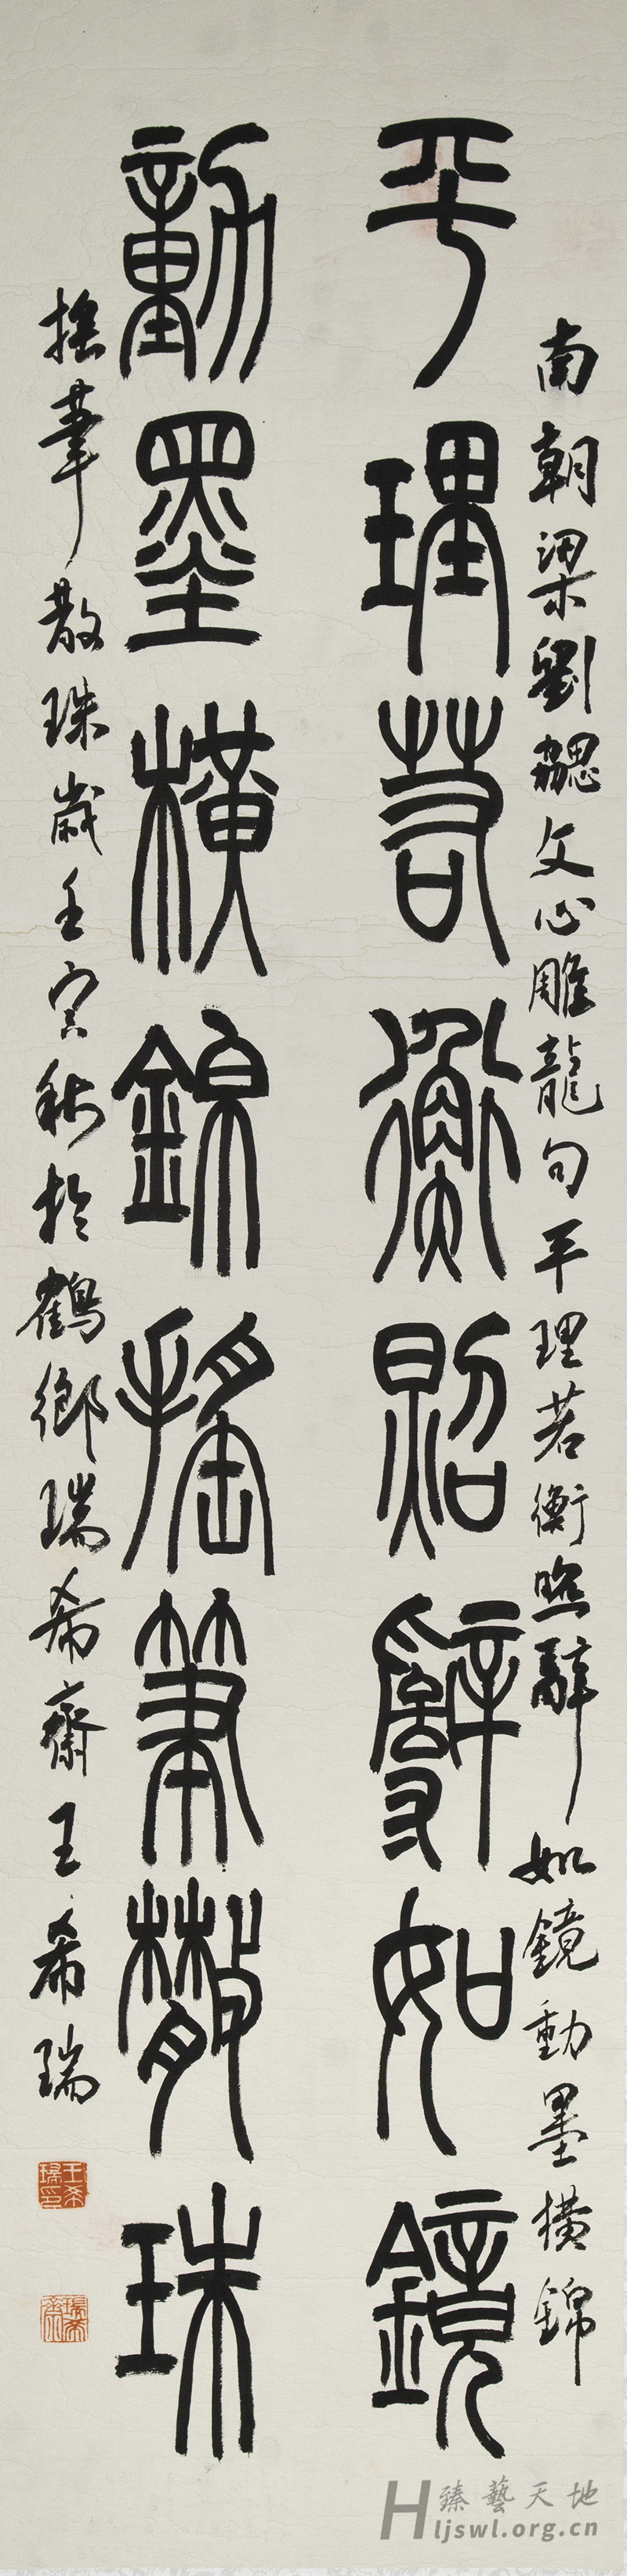 南朝梁劉勰文心雕龍句平理若衡照辭如鏡動墨橫錦
平理若衡照辭如鏡
動墨橫錦搖筆散珠
搖筆散珠歲壬寅秋於鶴鄉瑞希齋王希瑞
王希瑞印
瑞希齋
臻藝天地
Hljswl.org.cn